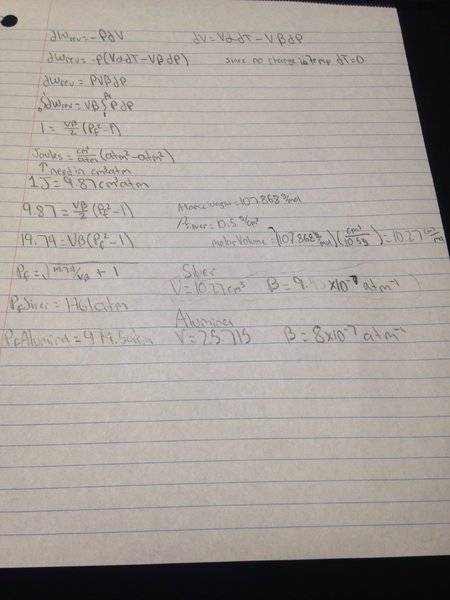 dWrev = -PdV    dV = VαdT - VβdP
dWrev = -P(VαdT - VβdP)    since no change in temp dT=0
dWrev = PVβdP
∫dWrev = Vβ∫PdP
1 = Vβ/2 (Pf² - 1²)
Joules = cm³/atm (atm² - atm²)
↑ need in cm³atm
1J = 9.87cm³atm
9.87 = Vβ/2 (Pf² - 1)    Atomic Weight = 107.868 g/mol
ρSilver = 10.5 g/cm³
19.74 = Vβ(Pf² - 1)    molar Volume = (107.868 g/mol)(cm³/10.5g) = 10.27 cm³/mol
Pf = √19.74/Vβ + 1    Silver
V = 10.27cm³    β = 9. ×10⁻⁷ atm⁻¹
PfSilver = 1461atm
Alumina
PfAlumina = 979.5atm    V = 25.715    β = 8×10⁻⁷ atm⁻¹